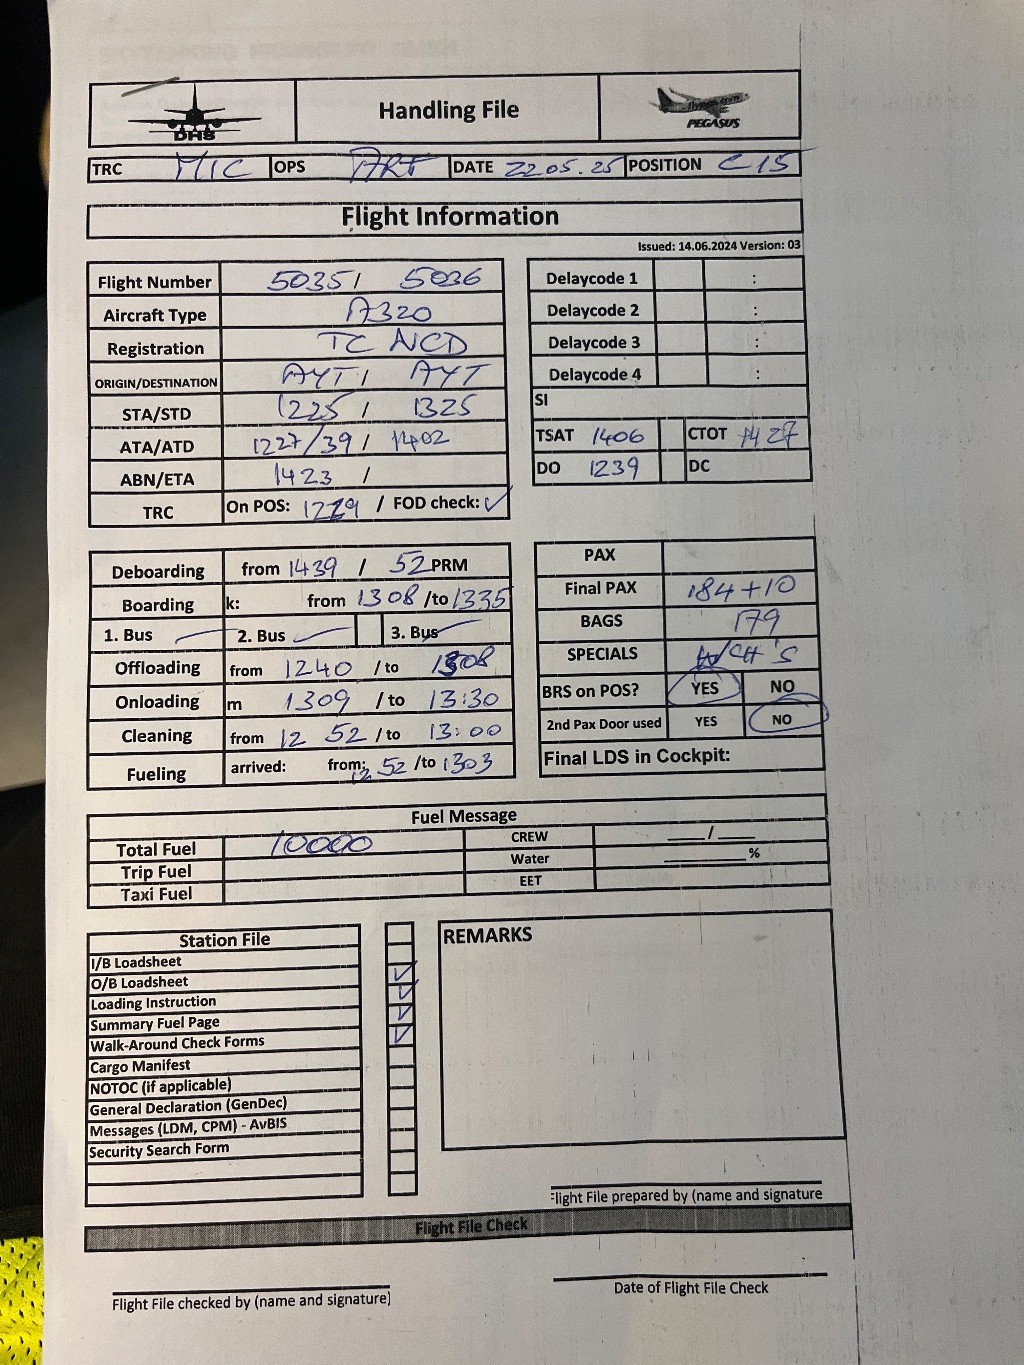 DHS
Handling File
flypgs.com
PEGASUS
TRC MIC OPS ART DATE 22.05.25 POSITION C15
Flight Information
Issued: 14.06.2024 Version: 03
Flight Number 5035 / 5036
Aircraft Type A320
Registration TC NCD
ORIGIN/DESTINATION AYT / AYT
STA/STD 1225 / 1325
ATA/ATD 1227/39 / 1402
ABN/ETA 1423 /
TRC On POS: 1229 / FOD check: ✓
Delaycode 1 :
Delaycode 2 :
Delaycode 3 :
Delaycode 4 :
SI
TSAT 1406 CTOT 1427
DO 1239 DC
Deboarding from 1439 / 52 PRM
Boarding k: from 1308 /to 1335
1. Bus 2. Bus 3. Bus
Offloading from 1240 / to 1308
Onloading m 1309 / to 13:30
Cleaning from 12 52 / to 13:00
Fueling arrived: from: 12 52 /to 1303
PAX
Final PAX 184+10
BAGS 179
SPECIALS WCH'S
BRS on POS? YES NO
2nd Pax Door used YES NO
Final LDS in Cockpit:
Fuel Message
Total Fuel 10000 CREW ___/___
Trip Fuel Water ______%
Taxi Fuel EET
Station File
I/B Loadsheet
O/B Loadsheet ✓
Loading Instruction ✓
Summary Fuel Page ✓
Walk-Around Check Forms ✓
Cargo Manifest
NOTOC (if applicable)
General Declaration (GenDec)
Messages (LDM, CPM) - AvBIS
Security Search Form
REMARKS
Flight File prepared by (name and signature
Flight File Check
Flight File checked by (name and signature)
Date of Flight File Check